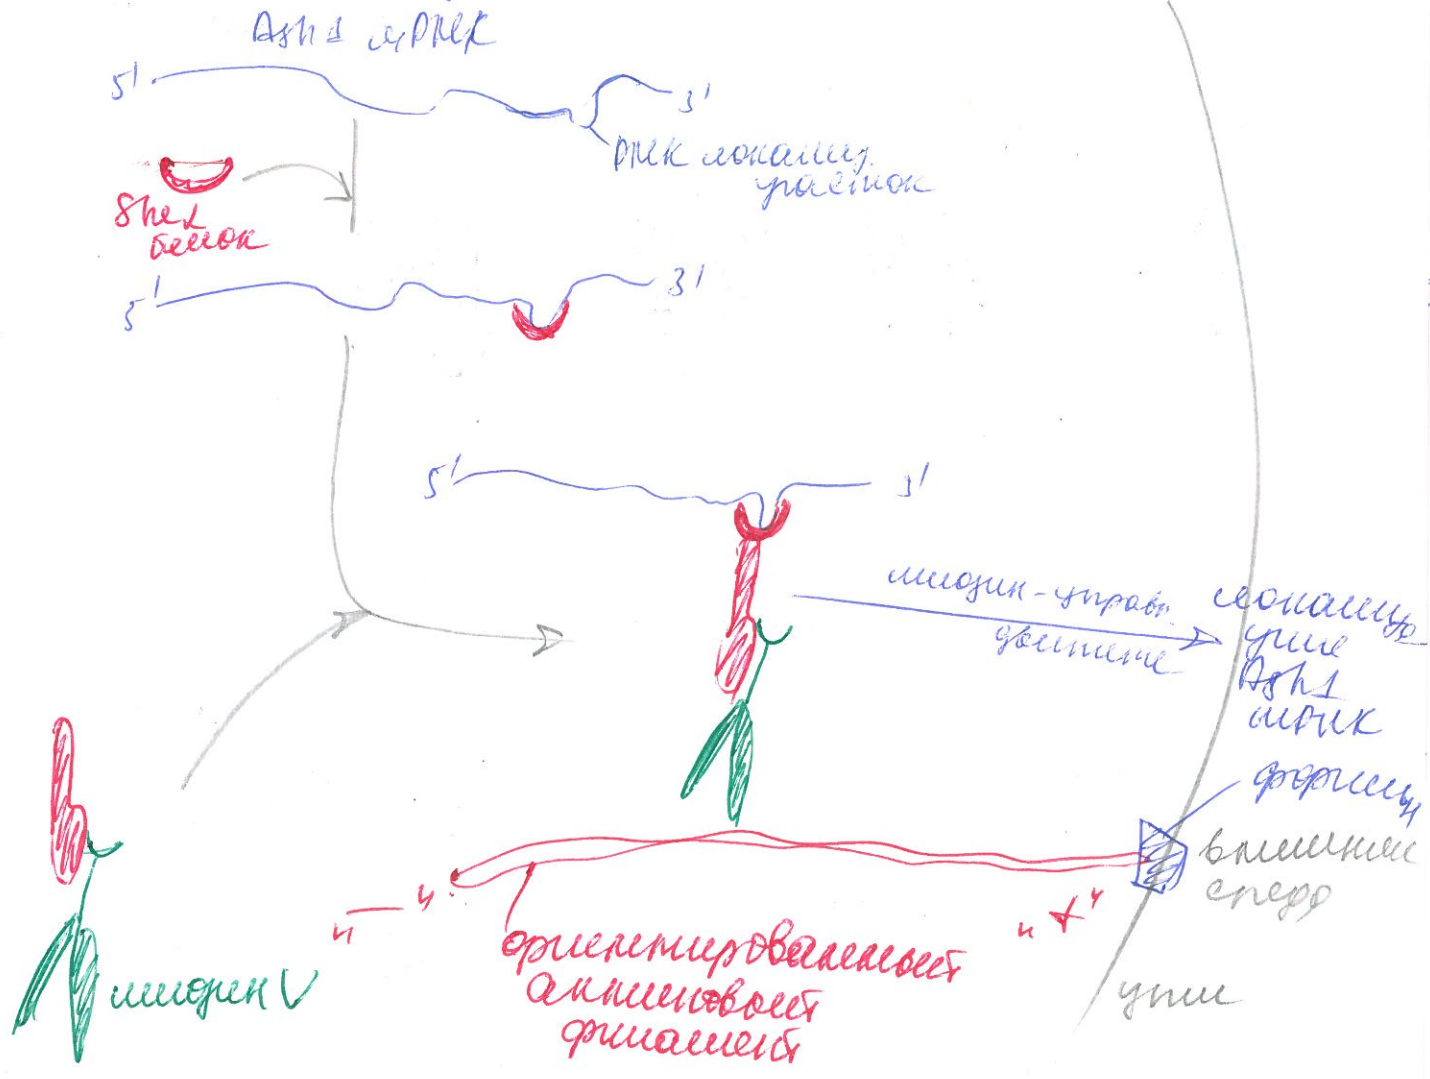 Ash1 мРНК
5' 3'
РНК локализ.
участок
She2
белок
5' 3'
5' 3'
миозин-управ.
движение
локализа-
ция
Ash1
мРНК
формин
внешняя
среда
"–" "+"
ориентированный
актиновый
филамент
миозин V